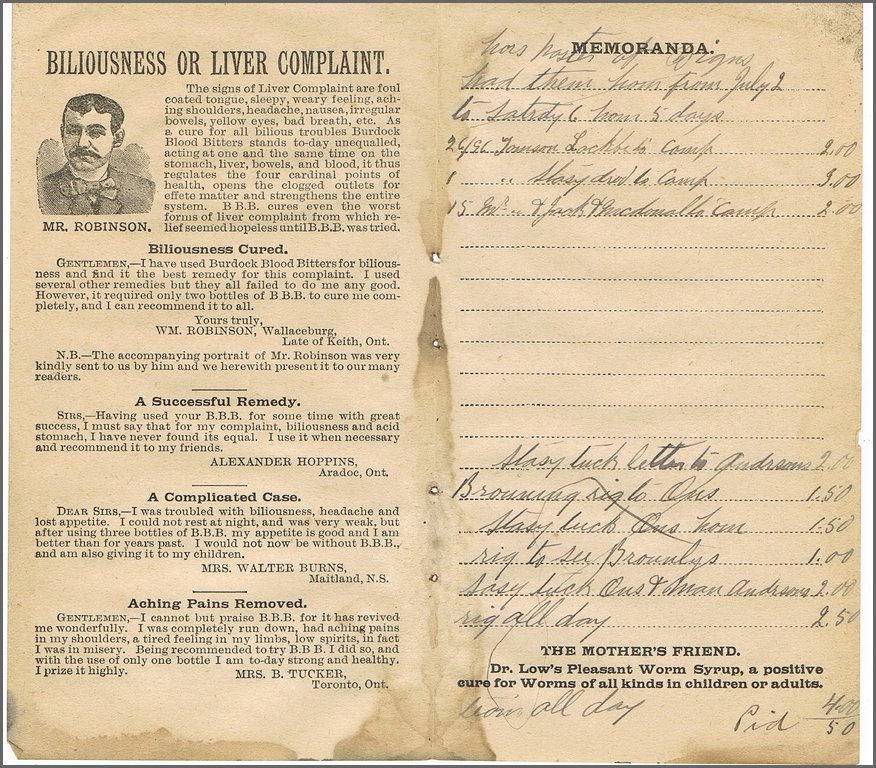 BILIOUSNESS OR LIVER COMPLAINT.
The signs of Liver Complaint are foul
coated tongue, sleepy, weary feeling, ach-
ing shoulders, headache, nausea, irregular
bowels, yellow eyes, bad breath, etc. As
a cure for all bilious troubles Burdock
Blood Bitters stands to-day unequalled,
acting at one and the same time on the
stomach, liver, bowels, and blood, it thus
regulates the four cardinal points of
health, opens the clogged outlets for
effete matter and strengthens the entire
system. B.B.B. cures even the worst
forms of liver complaint from which re-
lief seemed hopeless until B.B.B. was tried.
MR. ROBINSON.
Biliousness Cured.
GENTLEMEN,—I have used Burdock Blood Bitters for bilious-
ness and find it the best remedy for this complaint. I used
several other remedies but they all failed to do me any good.
However, it required only two bottles of B.B.B. to cure me com-
pletely, and I can recommend it to all.
Yours truly,
WM. ROBINSON, Wallaceburg,
Late of Keith, Ont.
N.B.—The accompanying portrait of Mr. Robinson was very
kindly sent to us by him and we herewith present it to our many
readers.
A Successful Remedy.
SIRS,—Having used your B.B.B. for some time with great
success, I must say that for my complaint, biliousness and acid
stomach, I have never found its equal. I use it when necessary
and recommend it to my friends.
ALEXANDER HOPPINS,
Aradoc, Ont.
A Complicated Case.
DEAR SIRS,—I was troubled with biliousness, headache and
lost appetite. I could not rest at night, and was very weak, but
after using three bottles of B.B.B. my appetite is good and I am
better than for years past. I would not now be without B.B.B.,
and am also giving it to my children.
MRS. WALTER BURNS,
Maitland, N.S.
Aching Pains Removed.
GENTLEMEN,—I cannot but praise B.B.B. for it has revived
me wonderfully. I was completely run down, had aching pains
in my shoulders, a tired feeling in my limbs, low spirits, in fact
I was in misery. Being recommended to try B B B. I did so, and
with the use of only one bottle I am to-day strong and healthy.
I prize it highly.
MRS. B. TUCKER,
Toronto, Ont.
MEMORANDA.
hors of
had them hom from July 2
to Satrdy 6 hom 5 days
to Camp 2.00
1 " Stasy drod to Camp 3.00
15 " & Jack Mcdonalls Camp 2.00
Stasy tuck letter to Andresons 2.00
Browning rig to Ons 1.50
Stasy tuck Ons hom 1.50
rig to see Brownlys 1.00
Sasy tuck Ons & man Andresons 2.00
rig all day 2.50
THE MOTHER'S FRIEND.
Dr. Low's Pleasant Worm Syrup, a positive
cure for Worms of all kinds in children or adults.
all day 4.00
Pid 50